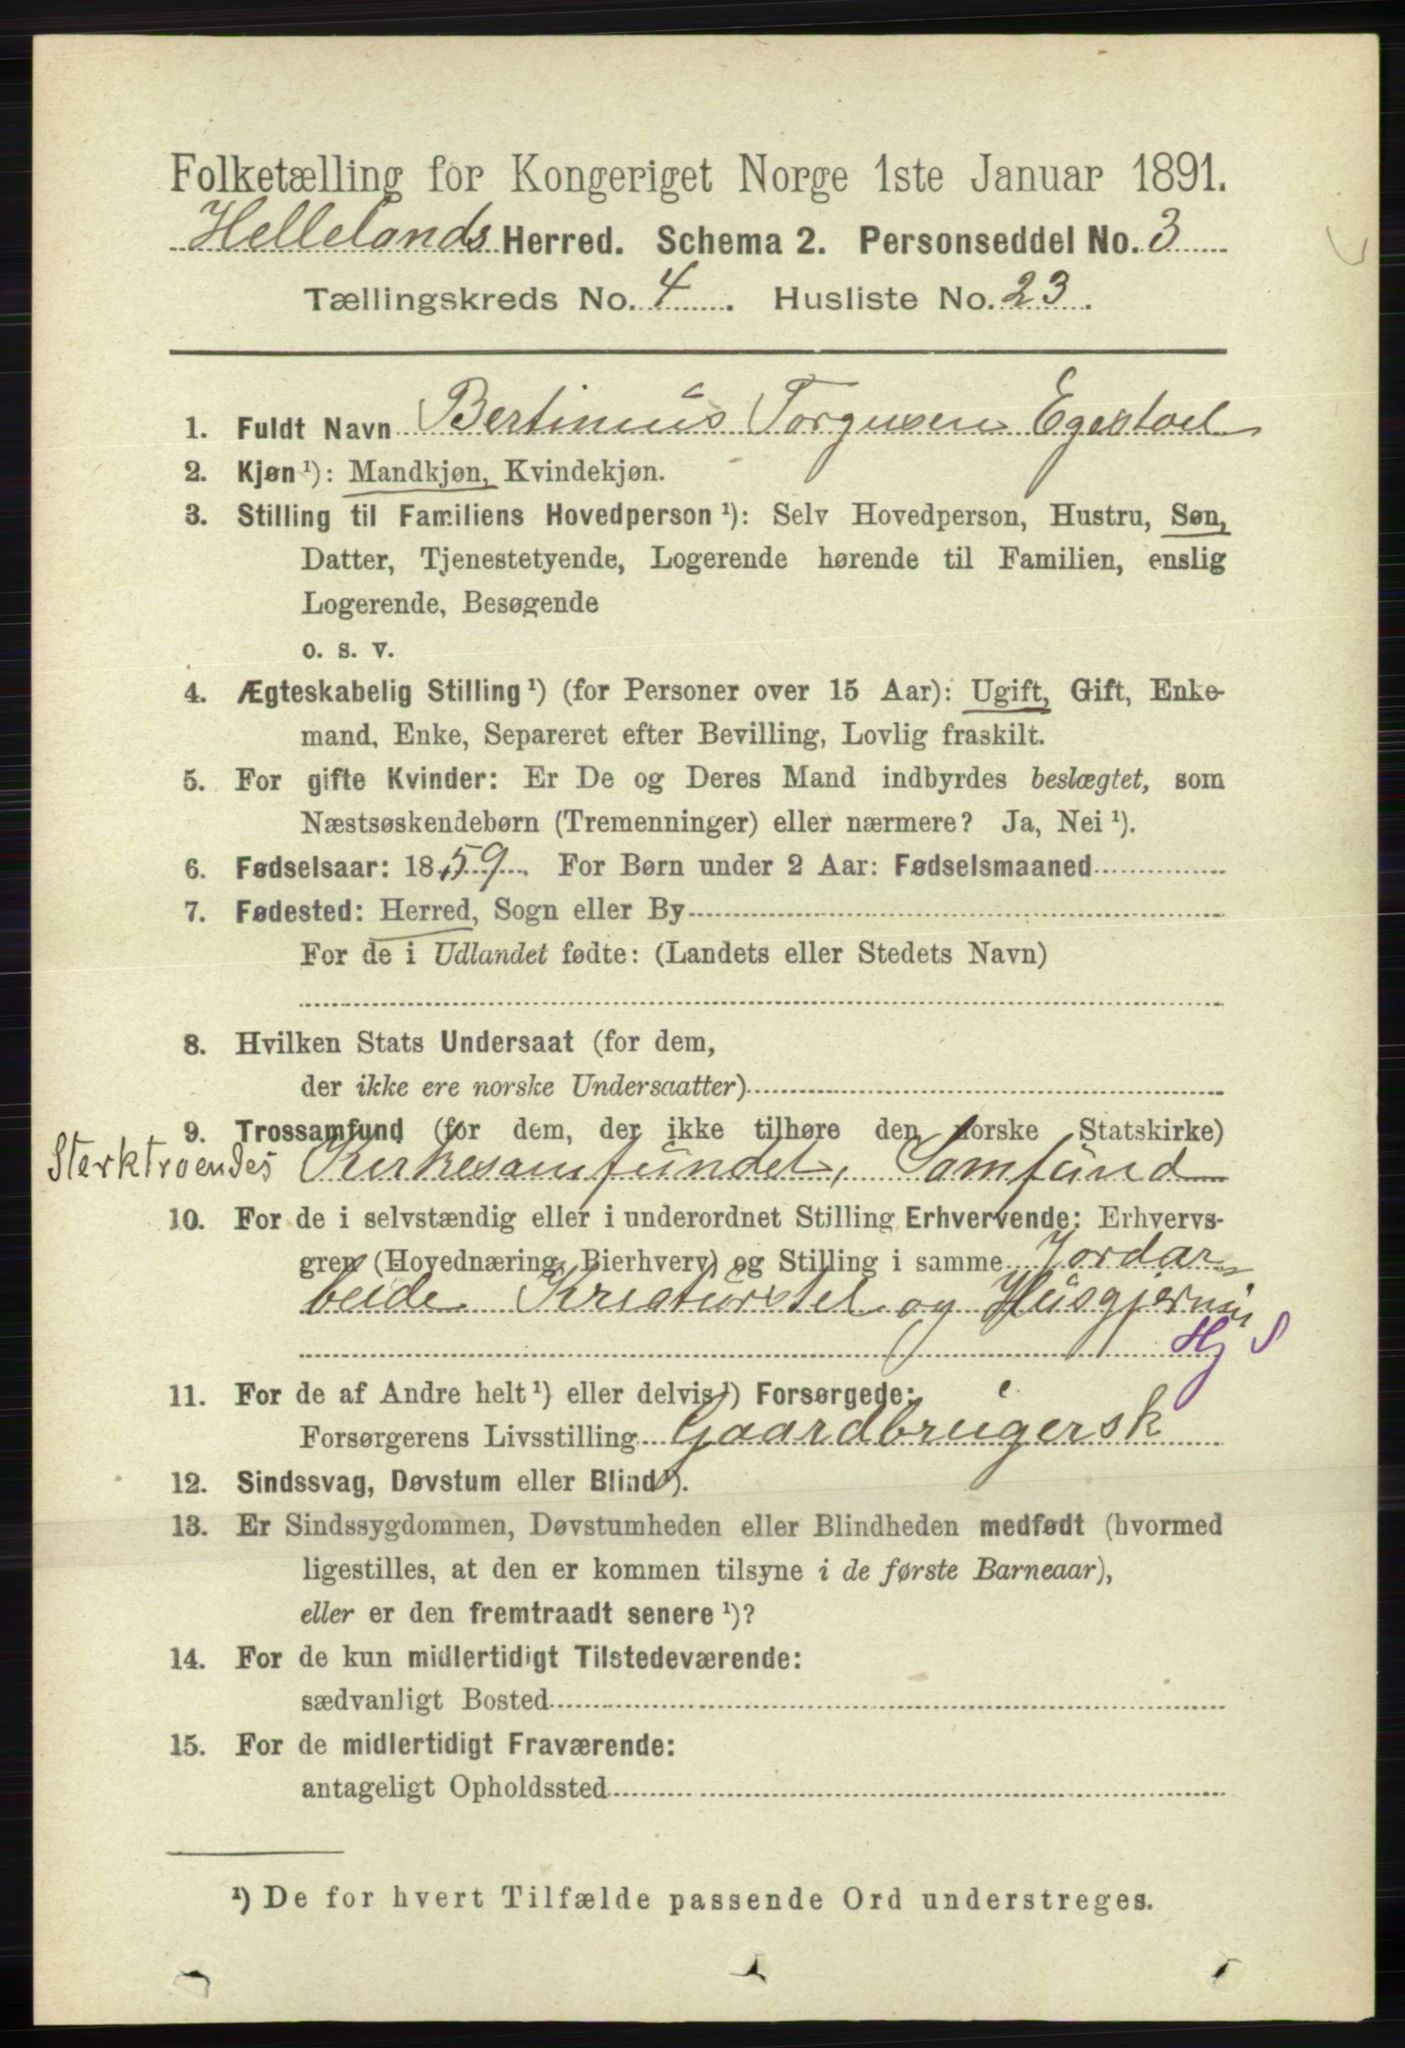 Folketælling for Kongeriget Norge 1ste Januar 1891.
Hellelands Herred. Schema 2. Personseddel No. 3
Tællingskreds No. 4. Husliste No. 23.
1. Fuldt Navn Bertinius Torgusen Egestoel
2. Kjøn ¹): Mandkjøn, Kvindekjøn.
3. Stilling til Familiens Hovedperson ¹): Selv Hovedperson, Hustru, Søn,
Datter, Tjenestetyende, Logerende hørende til Familien, enslig
Logerende, Besøgende
o. s. v.
4. Ægteskabelig Stilling ¹) (for Personer over 15 Aar): Ugift, Gift, Enke-
mand, Enke, Separeret efter Bevilling, Lovlig fraskilt.
5. For gifte Kvinder: Er De og Deres Mand indbyrdes beslægtet, som
Næstsøskendebørn (Tremenninger) eller nærmere? Ja, Nei ¹).
6. Fødselsaar: 1859. For Børn under 2 Aar: Fødselsmaaned
7. Fødested: Herred, Sogn eller By
For de i Udlandet fødte: (Landets eller Stedets Navn)
8. Hvilken Stats Undersaat (for dem,
der ikke ere norske Undersaatter)
9. Trossamfund (for dem, der ikke tilhøre den norske Statskirke)
Sterktroendes Kirkesamfundet, Samfund
10. For de i selvstændig eller i underordnet Stilling Erhvervende: Erhvervs-
gren (Hovednæring, Bierhverv) og Stilling i samme Jordar
beide Kreaturstel og Husgjerning
Hj S
11. For de af Andre helt ¹) eller delvis ¹) Forsørgede:
Forsørgerens Livsstilling Gaardbrugersk
12. Sindssvag, Døvstum eller Blind ¹).
13. Er Sindssygdommen, Døvstumheden eller Blindheden medfødt (hvormed
ligestilles, at den er kommen tilsyne i de første Barneaar),
eller er den fremtraadt senere ¹)?
14. For de kun midlertidigt Tilstedeværende:
sædvanligt Bosted
15. For de midlertidigt Fraværende:
antageligt Opholdssted
¹) De for hvert Tilfælde passende Ord understreges.